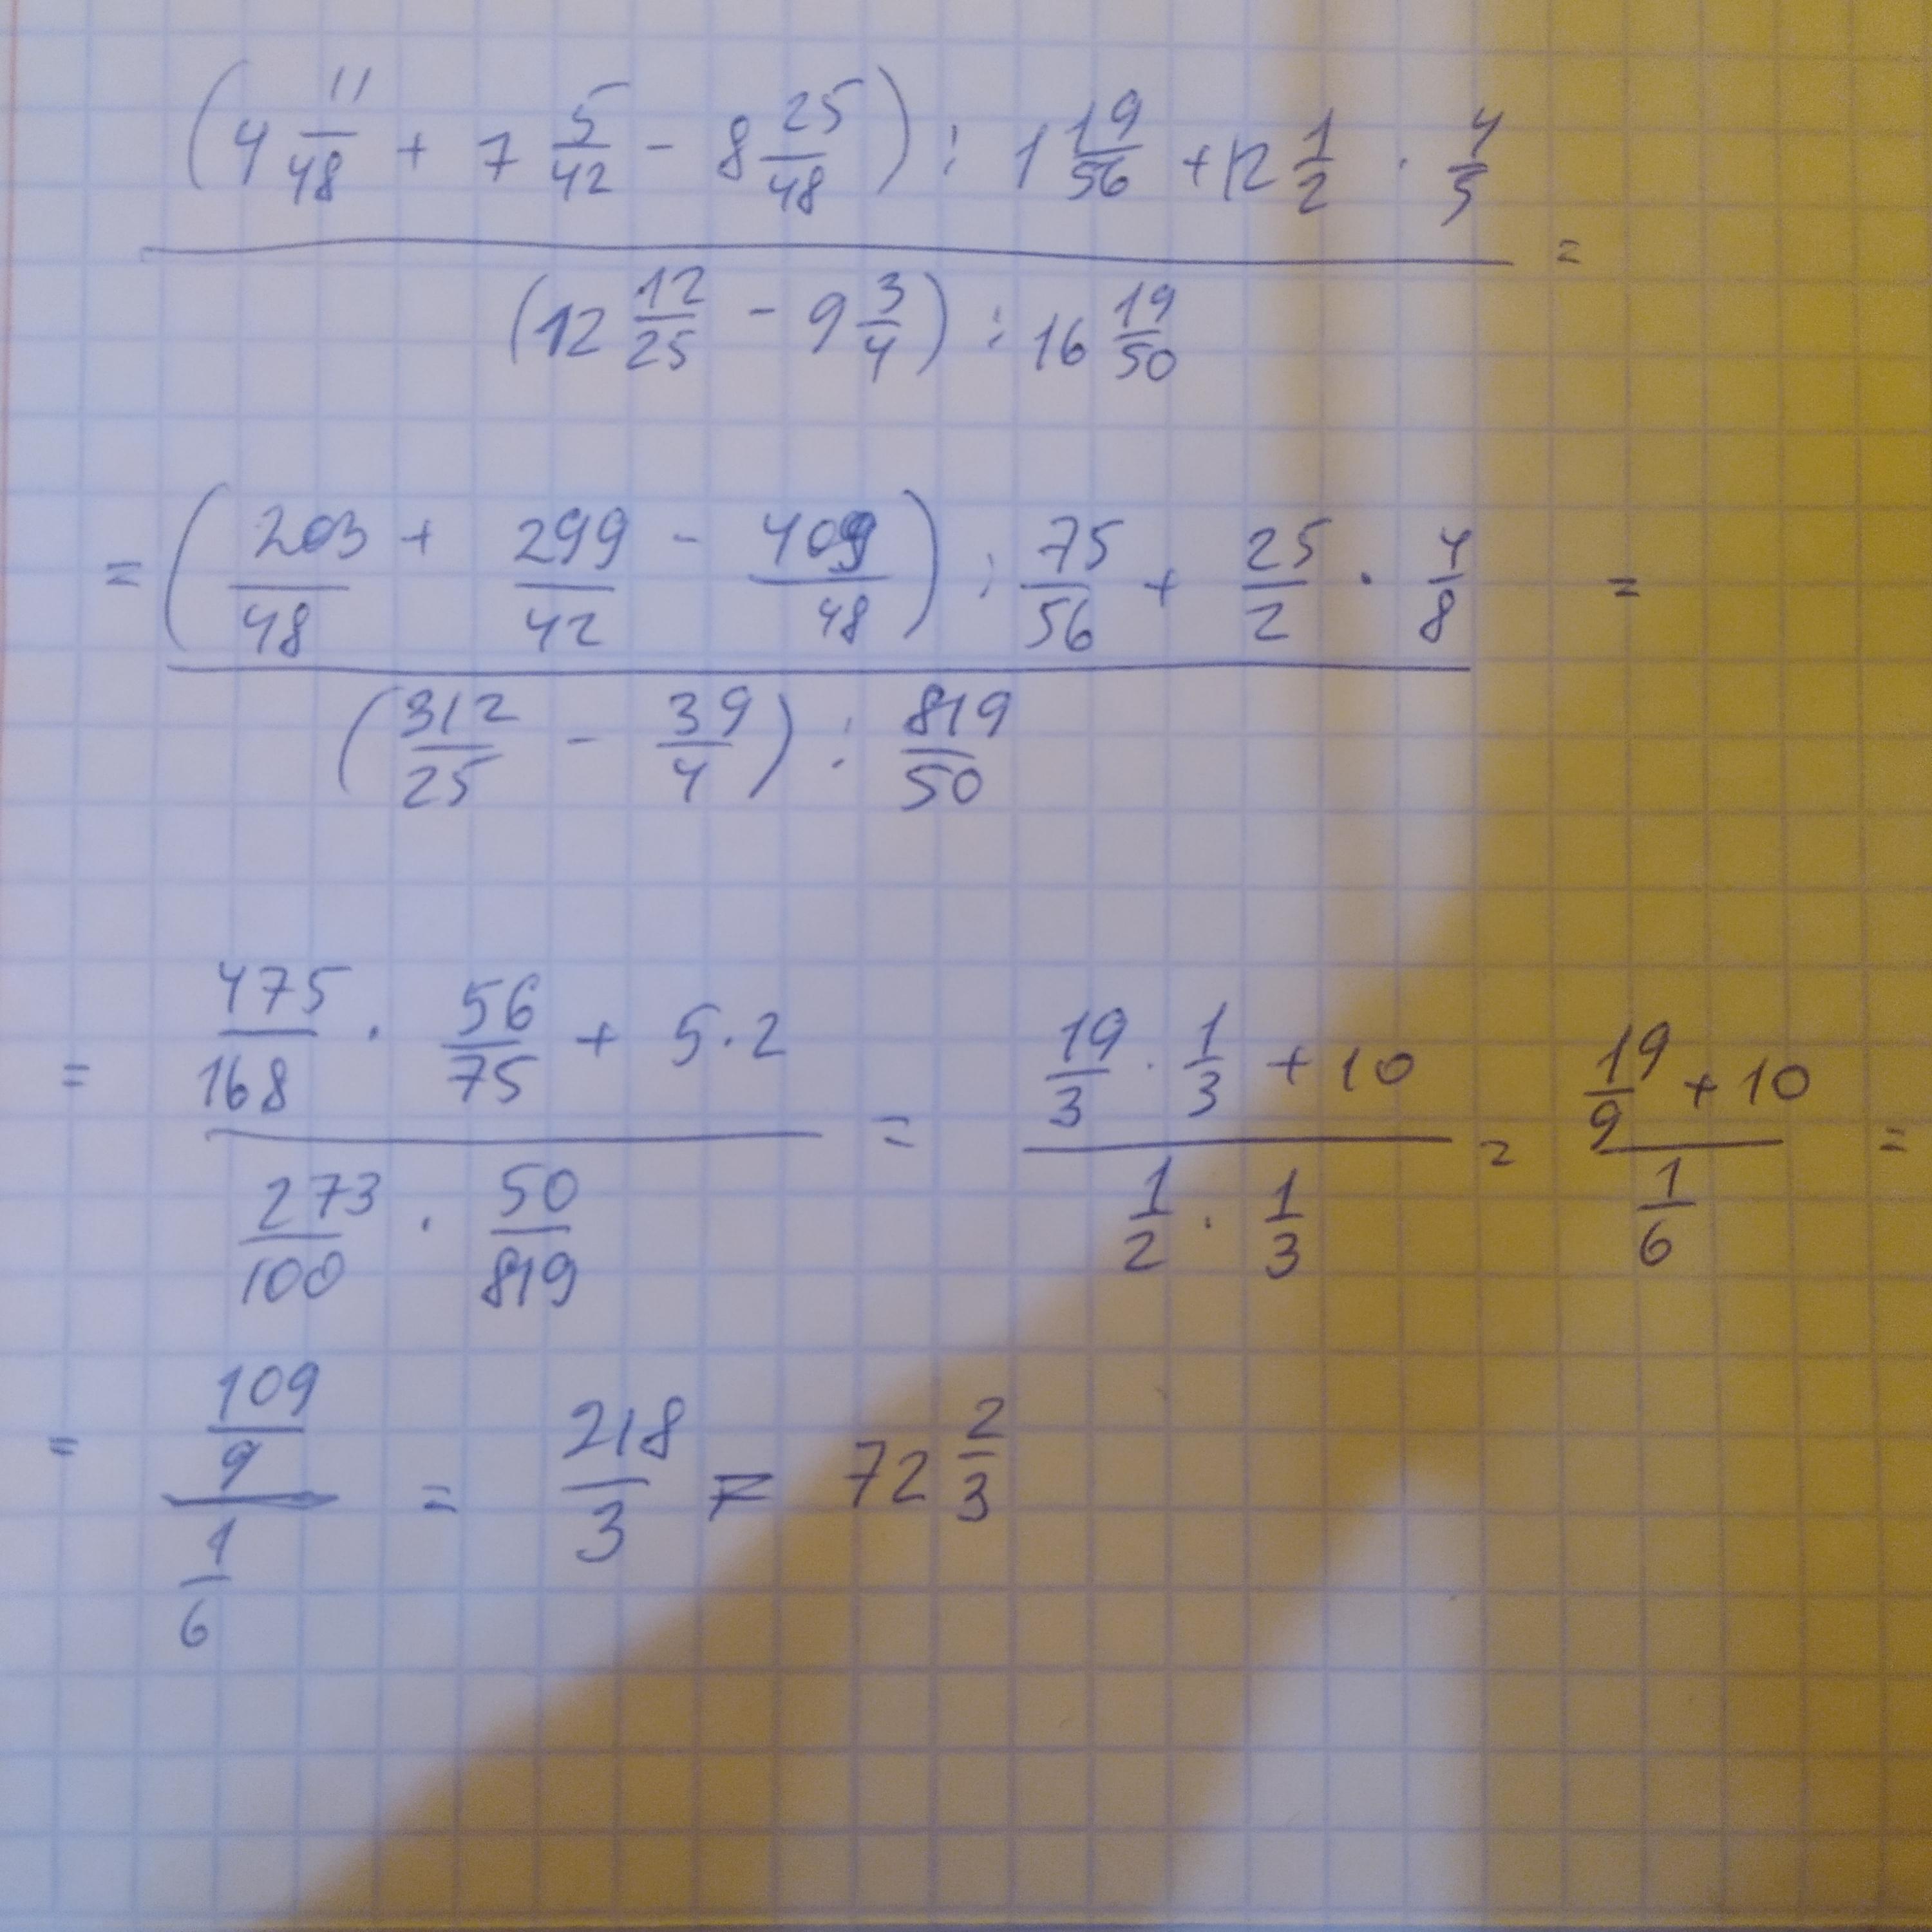 (4 11/48 + 7 5/42 - 8 25/48) : 1 19/56 + 12 1/2 · 4/5 =
(12 12/25 - 9 3/4) : 16 19/50
= (203/48 + 299/42 - 409/48) : 75/56 + 25/2 · 4/8 =
(312/25 - 39/4) : 819/50
= 475/168 · 56/75 + 5·2 = 19/3 · 1/3 + 10 = 19/9 + 10 =
273/100 · 50/819 1/2 · 1/3 1/6
= 109/9 = 218/3 = 72 2/3
1/6